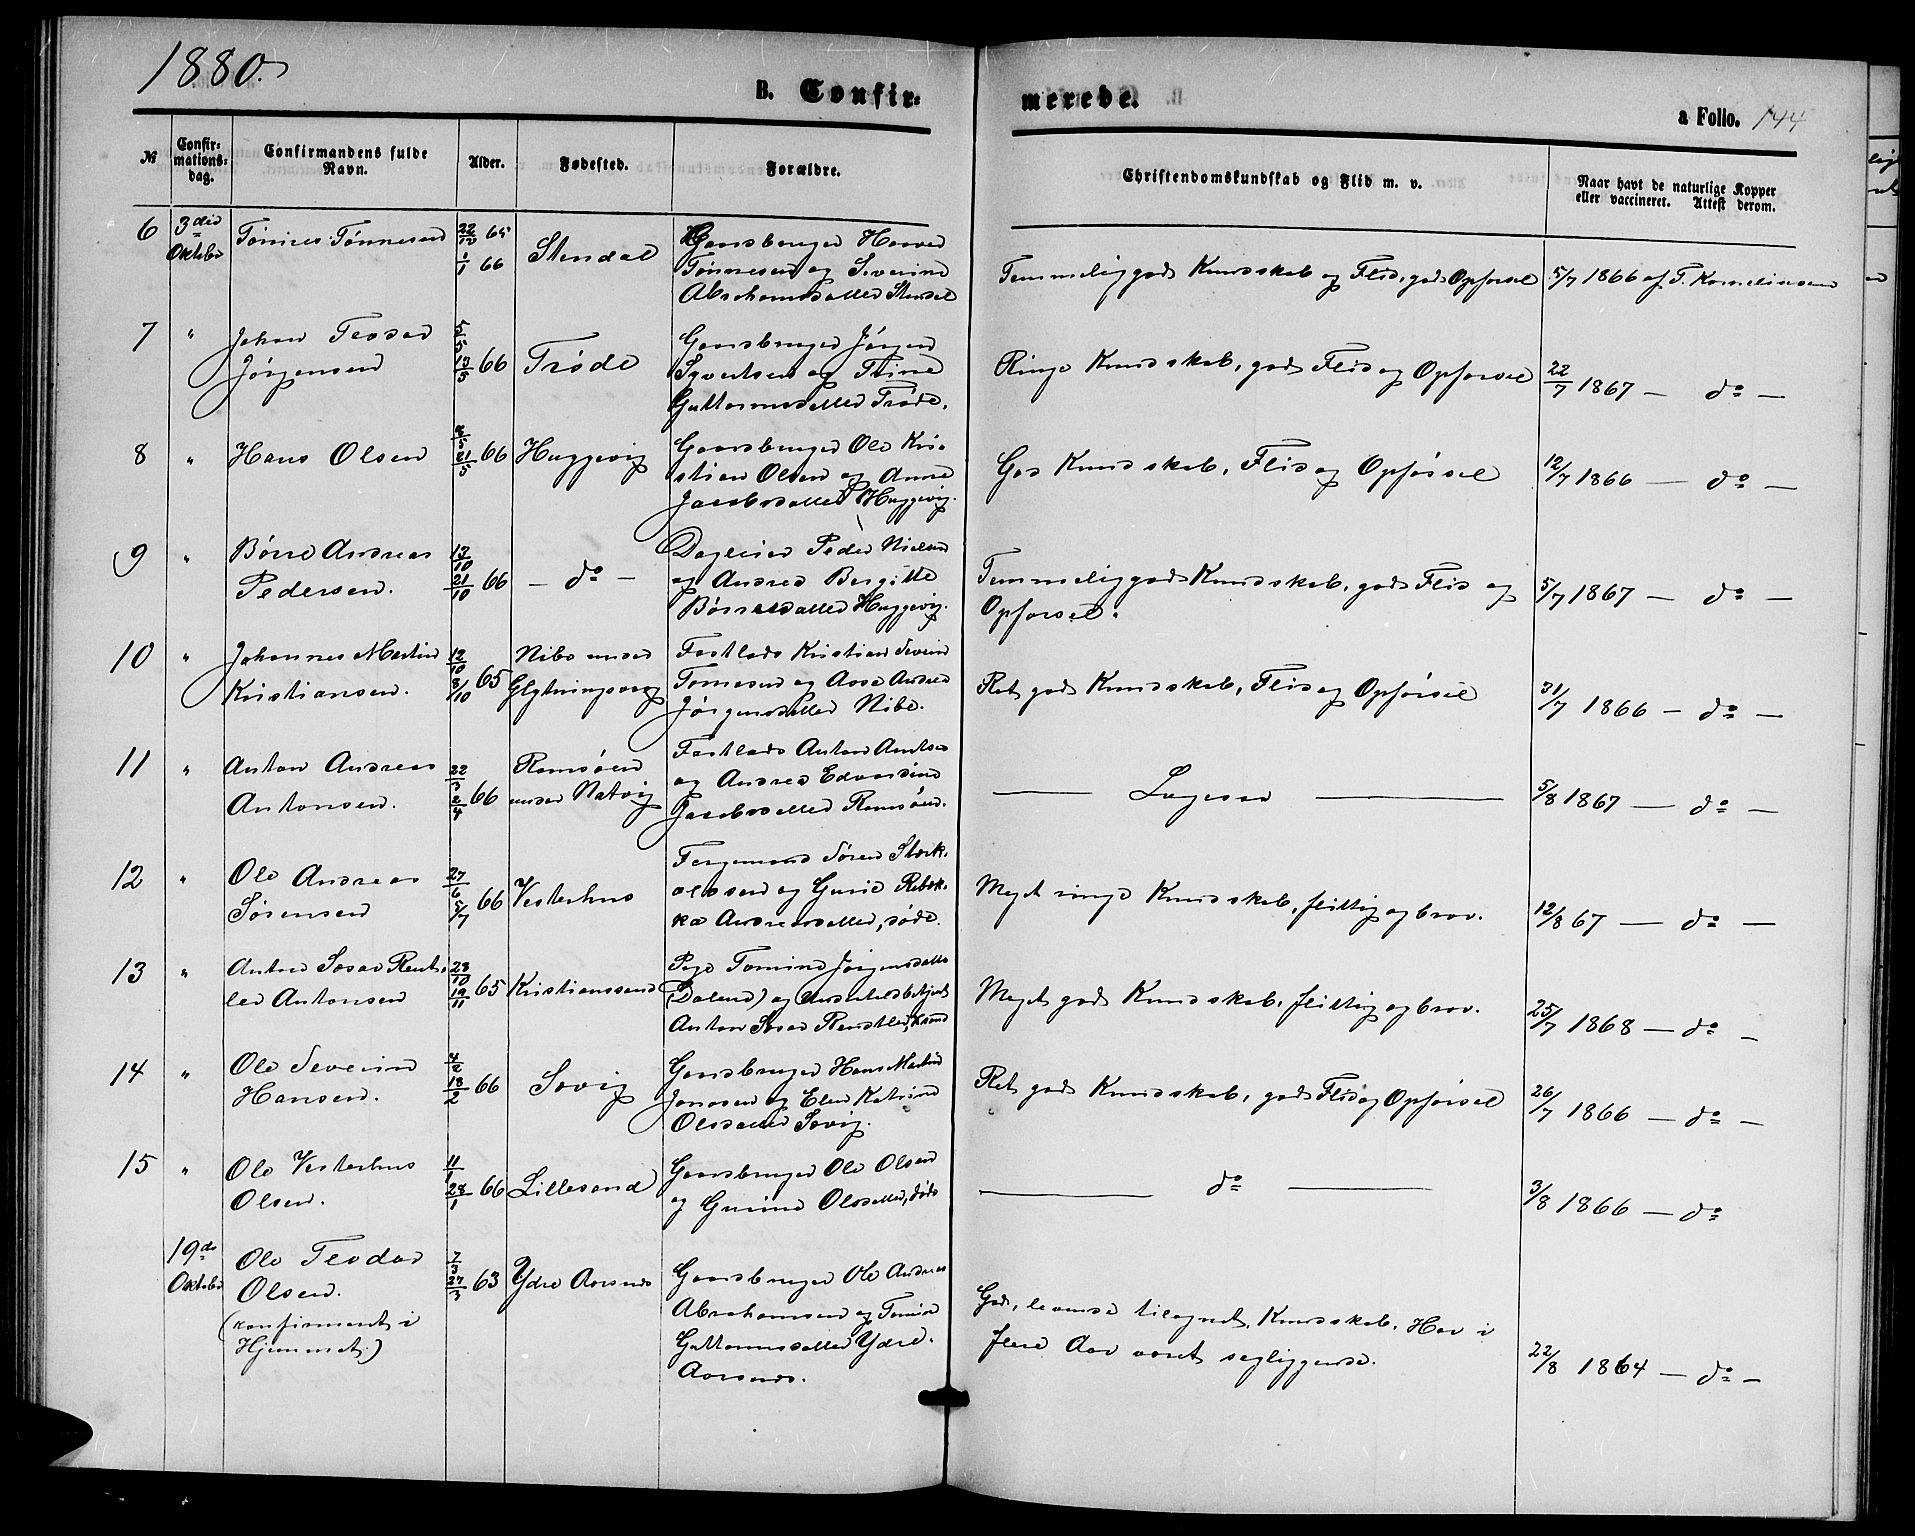 1880.
B. Confir-
merede.
a Folio. 144
№
Confir-
mations-
dag.
Confirmandens fulde
Navn.
Alder.
Fødested.
Forældre.
Christendomskundskab og Flid m. v.
Naar havt de naturlige Kopper
eller vaccineret. Attest derom.
6 3die
Oktober
Tønnes Tønnesen
22/12 65
1/1 66
Stendal
Gaardbruger
Tønnesen og Severine
Abrahamsdatter Stendal
Temmelig god Kundskab og Flid, god Opførsel
5/7 1866 af T. Kornelinsen
7 "
Johan Teodor
Jørgensen
5/5
13/5 66
Trøde
Gaardbruger Jørgen
Syvertsen og Trine
Guttormsdatter Trøde.
Ringe Kundskab, god Flid og Opførsel
22/7 1867 — do —
8 "
Hans Olsen
8/5
21/5 66
Huggevig
Gaardbruger Ole Kri-
stian Olsen og Anne
Jacobsdatter Huggevig.
God Kundskab, Flid og Opførsel
12/7 1866 — do —
9 "
Børre Andreas
Pedersen.
13/10
21/10 66
— do —
Dagleier Peder Nielsen
og Andrea Bergitte
Børresdatter Huggevig.
Temmelig god Kundskab, god Flid og
Opførsel.
5/7 1867 — do —
10 "
Johannes Martin
Kristiansen.
12/10
8/10 65
Nibe under
Fastlads Kristian Severin
Tønnesen og Aase Andrea
Jørgensdatter Nibe.
Ret god Kundskab, Flid og Opførsel
31/7 1866 — do —
11 "
Anton Andreas
Antonsen.
22/3
2/4 66
Ramsøen
under Natvig
Fastlads Anton
og Andrea Edvardine
Jacobsdatter Ramsøen.
— Ligesaa —
5/8 1867 — do —
12 "
Ole Andreas
Sørensen
27/6
5/7 66
Vesterhus
Færgemand Søren Stærk-
olssen og Guri Rebek-
ka Andreasdatter, døde.
Meget ringe Kundskab, flittig og brav.
12/8 67 — do —
13 "
ler Antonsen
28/10
19/11 65
Kristianssand
Pige Tomine Jørgensdatter
(Dalene) og
Anton
Meget god Kundskab, flittig og brav.
25/7 1868 — do —
14 "
Ole Severin
Hansen.
4/2
18/2 66
Søvig
Gaardbruger Hans Martin
Jonasen og Elen Katrine
Olsdatter Søvig.
Ret god Kundskab, god Flid og Opførsel
26/7 1866 — do —
15 "
Ole Vesterhus
Olsen.
11/1
28/1 66
Lillesand
Gaardbruger Ole Olsen
og Gurine Olsdatter, døde
— do —
3/8 1866 — do
19de
Oktober
Ole Teodor
Olsen.
(konfirmeret i
Hjemmet.)
7/3
27/3 63
Ydre Aarsnes
Gaardbruger Ole Andreas
Abrahamsen og Tomine
Guttormsdatter Ydre
Aarsnes.
God, levende tilegnet, Kundskab. Har i
flere Aar været sengliggende.
22/8 1864 — do —